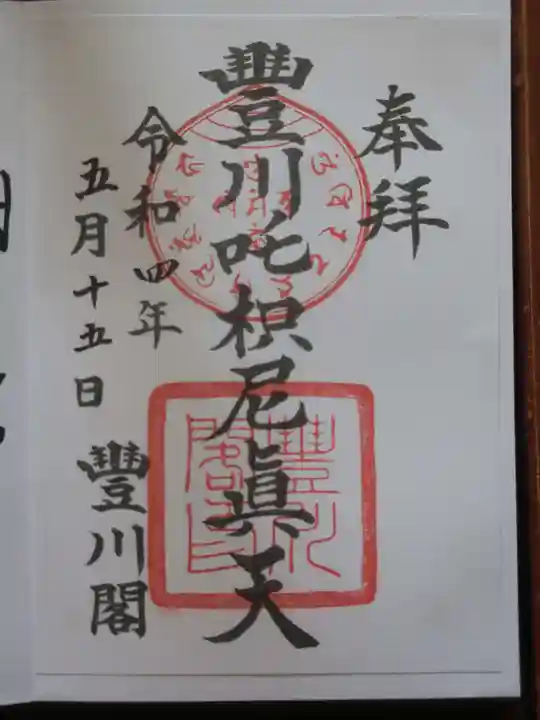 奉拝
豐川吒枳尼眞天
令和四年
五月十五日
豐川閣
豐川閣印